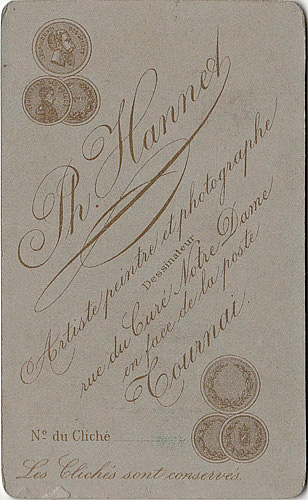 Ph. Hannet
Artiste peintre et photographe
Dessinateur
rue du Curé Notre Dame
en face de la poste
Tournai.
Nº du Cliché
Les Clichés sont conservés.